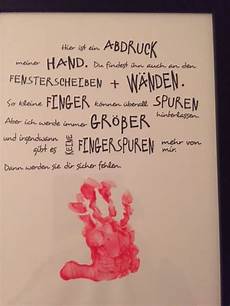 Hier ist ein ABDRUCK
meiner HAND. Du findest ihn auch an den
FENSTERSCHEIBEN + WÄNDEN.
So kleine FINGER können überall SPUREN
hinterlassen.
Aber ich werde immer GRÖßER
und irgendwann gibt es KEINE FINGERSPUREN mehr von mir.
Dann werden sie dir sicher fehlen.